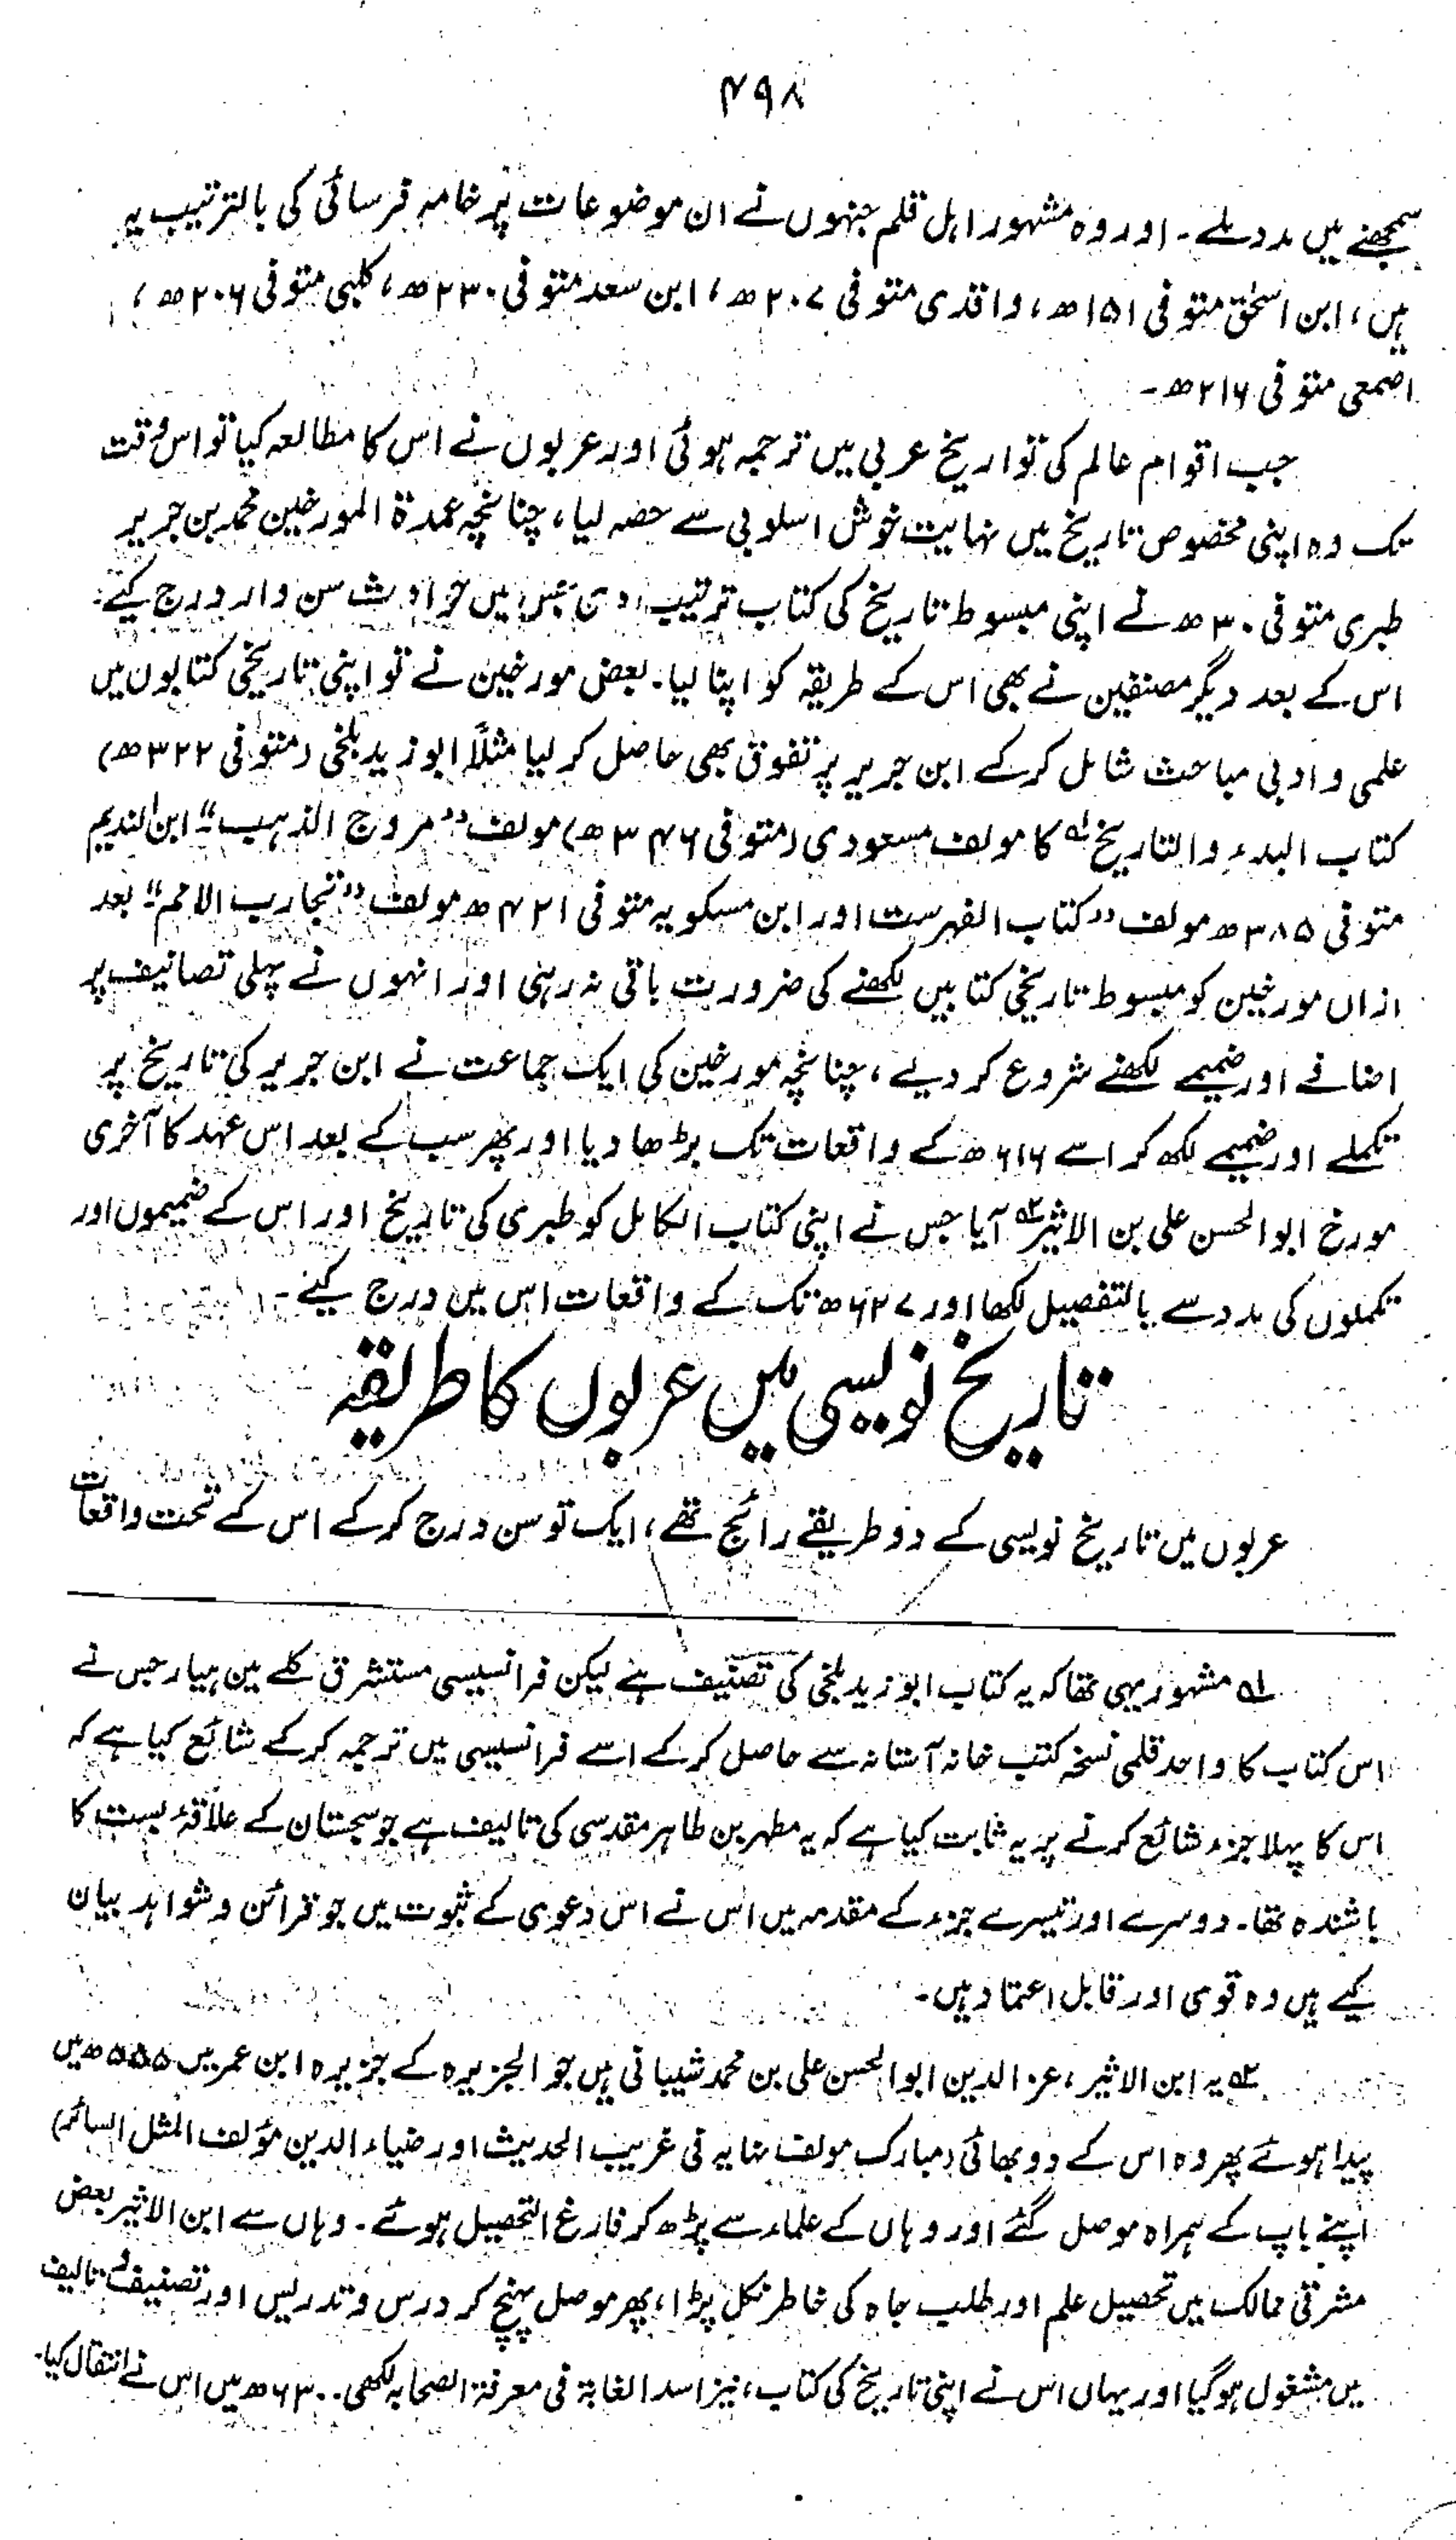 ۴۹۸
سمجھنے میں مدد ملے۔ اور وہ مشہور اہل قلم جنہوں نے ان موضوعات پر خامہ فرسائی کی بالترتیب یہ
ہیں، ابن اسحٰق متوفی ۱۵۱ھ، واقدی متوفی ۲۰۷ھ، ابن سعد متوفی ۲۳۰ھ، کلبی متوفی ۲۰۶ھ،
اصمعی متوفی ۲۱۶ھ۔
جب اقوام عالم کی تواریخ عربی میں ترجمہ ہوئی اور عربوں نے اس کا مطالعہ کیا تو اس وقت
تک وہ اپنی مخصوص تاریخ میں نہایت خوش اسلوبی سے حصہ لیا، چنانچہ عمدۃ المورخین محمد بن جریر
طبری متوفی ۳۰ھ نے اپنی مبسوط تاریخ کی کتاب ترتیب دی جس میں حوادث سن وار درج کیے۔
اس کے بعد دیگر مصنفین نے بھی اس کے طریقہ کو اپنا لیا۔ بعض مورخین نے تو اپنی تاریخی کتابوں میں
علمی و ادبی مباحث شامل کر کے ابن جریر پر تفوق بھی حاصل کر لیا مثلاً ابو زید بلخی (متوفی ۳۲۲ھ)
کتاب البدء والتاریخ لہ کا مولف مسعودی (متوفی ۳۴۶ھ) مولف "مروج الذہب"۔ ابن الندیم
متوفی ۳۸۵ھ مولف "کتاب الفہرست اور ابن مسکویہ متوفی ۴۲۱ھ مولف "تجارب الامم" بعد
ازاں مورخین کو مبسوط تاریخی کتابیں لکھنے کی ضرورت باقی نہ رہی اور انہوں نے پہلی تصانیف پر
اضافے اور ضمیمے لکھنے شروع کر دیے، چنانچہ مورخین کی ایک جماعت نے ابن جریر کی تاریخ پر
تکملے اور ضمیمے لکھ کر اسے ۶۱۶ھ کے واقعات تک بڑھا دیا اور پھر سب کے بعد اس عہد کا آخری
مورخ ابوالحسن علی بن الاثیر ۲ہ آیا جس نے اپنی کتاب الکامل کو طبری کی تاریخ اور اس کے ضمیموں اور
تکملوں کی مدد سے بالتفصیل لکھا اور ۶۲۷ھ تک کے واقعات اس میں درج کیئے۔
تاریخ نویسی میں عربوں کا طریقہ
عربوں میں تاریخ نویسی کے دو طریقے رائج تھے، ایک تو سن درج کر کے اس کے تحت واقعات
۱ہ مشہور یہی تھا کہ یہ کتاب ابو زید بلخی کی تصنیف ہے لیکن فرانسیسی مستشرق کلے مین ہیار جس نے
اس کتاب کا واحد قلمی نسخہ کتب خانہ آستانہ سے حاصل کر کے اسے فرانسیسی میں ترجمہ کر کے شائع کیا ہے کہ
اس کا پہلا جزء شائع کرنے پر یہ ثابت کیا ہے کہ یہ مطہر بن طاہر مقدسی کی تالیف ہے جو سجستان کے علاقۂ بست کا
باشندہ تھا۔ دوسرے اور تیسرے جزء کے مقدمہ میں اس نے اس دعوی کے ثبوت میں جو قرائن و شواہد بیان
کیے ہیں وہ قوی اور قابل اعتماد ہیں۔
۲ہ یہ ابن الاثیر، عز الدین ابوالحسن علی بن محمد شیبانی ہیں جو الجزیرہ کے جزیرہ ابن عمر میں ۵۵۵ھ میں
پیدا ہوئے پھر وہ اس کے دو بھائی (مبارک مولف نہایہ فی غریب الحدیث اور ضیاء الدین مؤلف المثل السائر)
اپنے باپ کے ہمراہ موصل گئے اور وہاں کے علماء سے پڑھ کر فارغ التحصیل ہوئے۔ وہاں سے ابن الاثیر بعض
مشرقی ممالک میں تحصیل علم اور طلب جاہ کی خاطر نکل پڑا، پھر موصل پہنچ کر درس و تدریس اور تصنیف و تالیف
میں مشغول ہو گیا اور یہاں اس نے اپنی تاریخ کی کتاب، نیز اسد الغابۃ فی معرفۃ الصحابہ لکھی۔ ۶۳۰ھ میں اس نے انتقال کیا۔